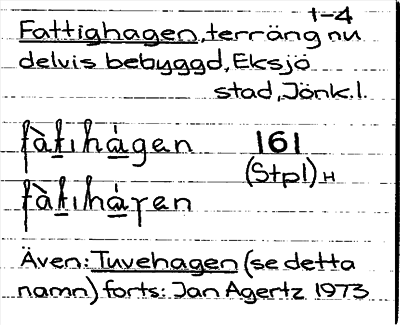 1-4
Fattighagen, terräng nu
delvis bebyggd, Eksjö
stad, Jönk.l.
fàt̲ɩhàgen 161
(Stpl) H
fàt̲ɩhàɣen
Även: Tuvehagen (se detta
namn) forts: Jan Agertz 1973